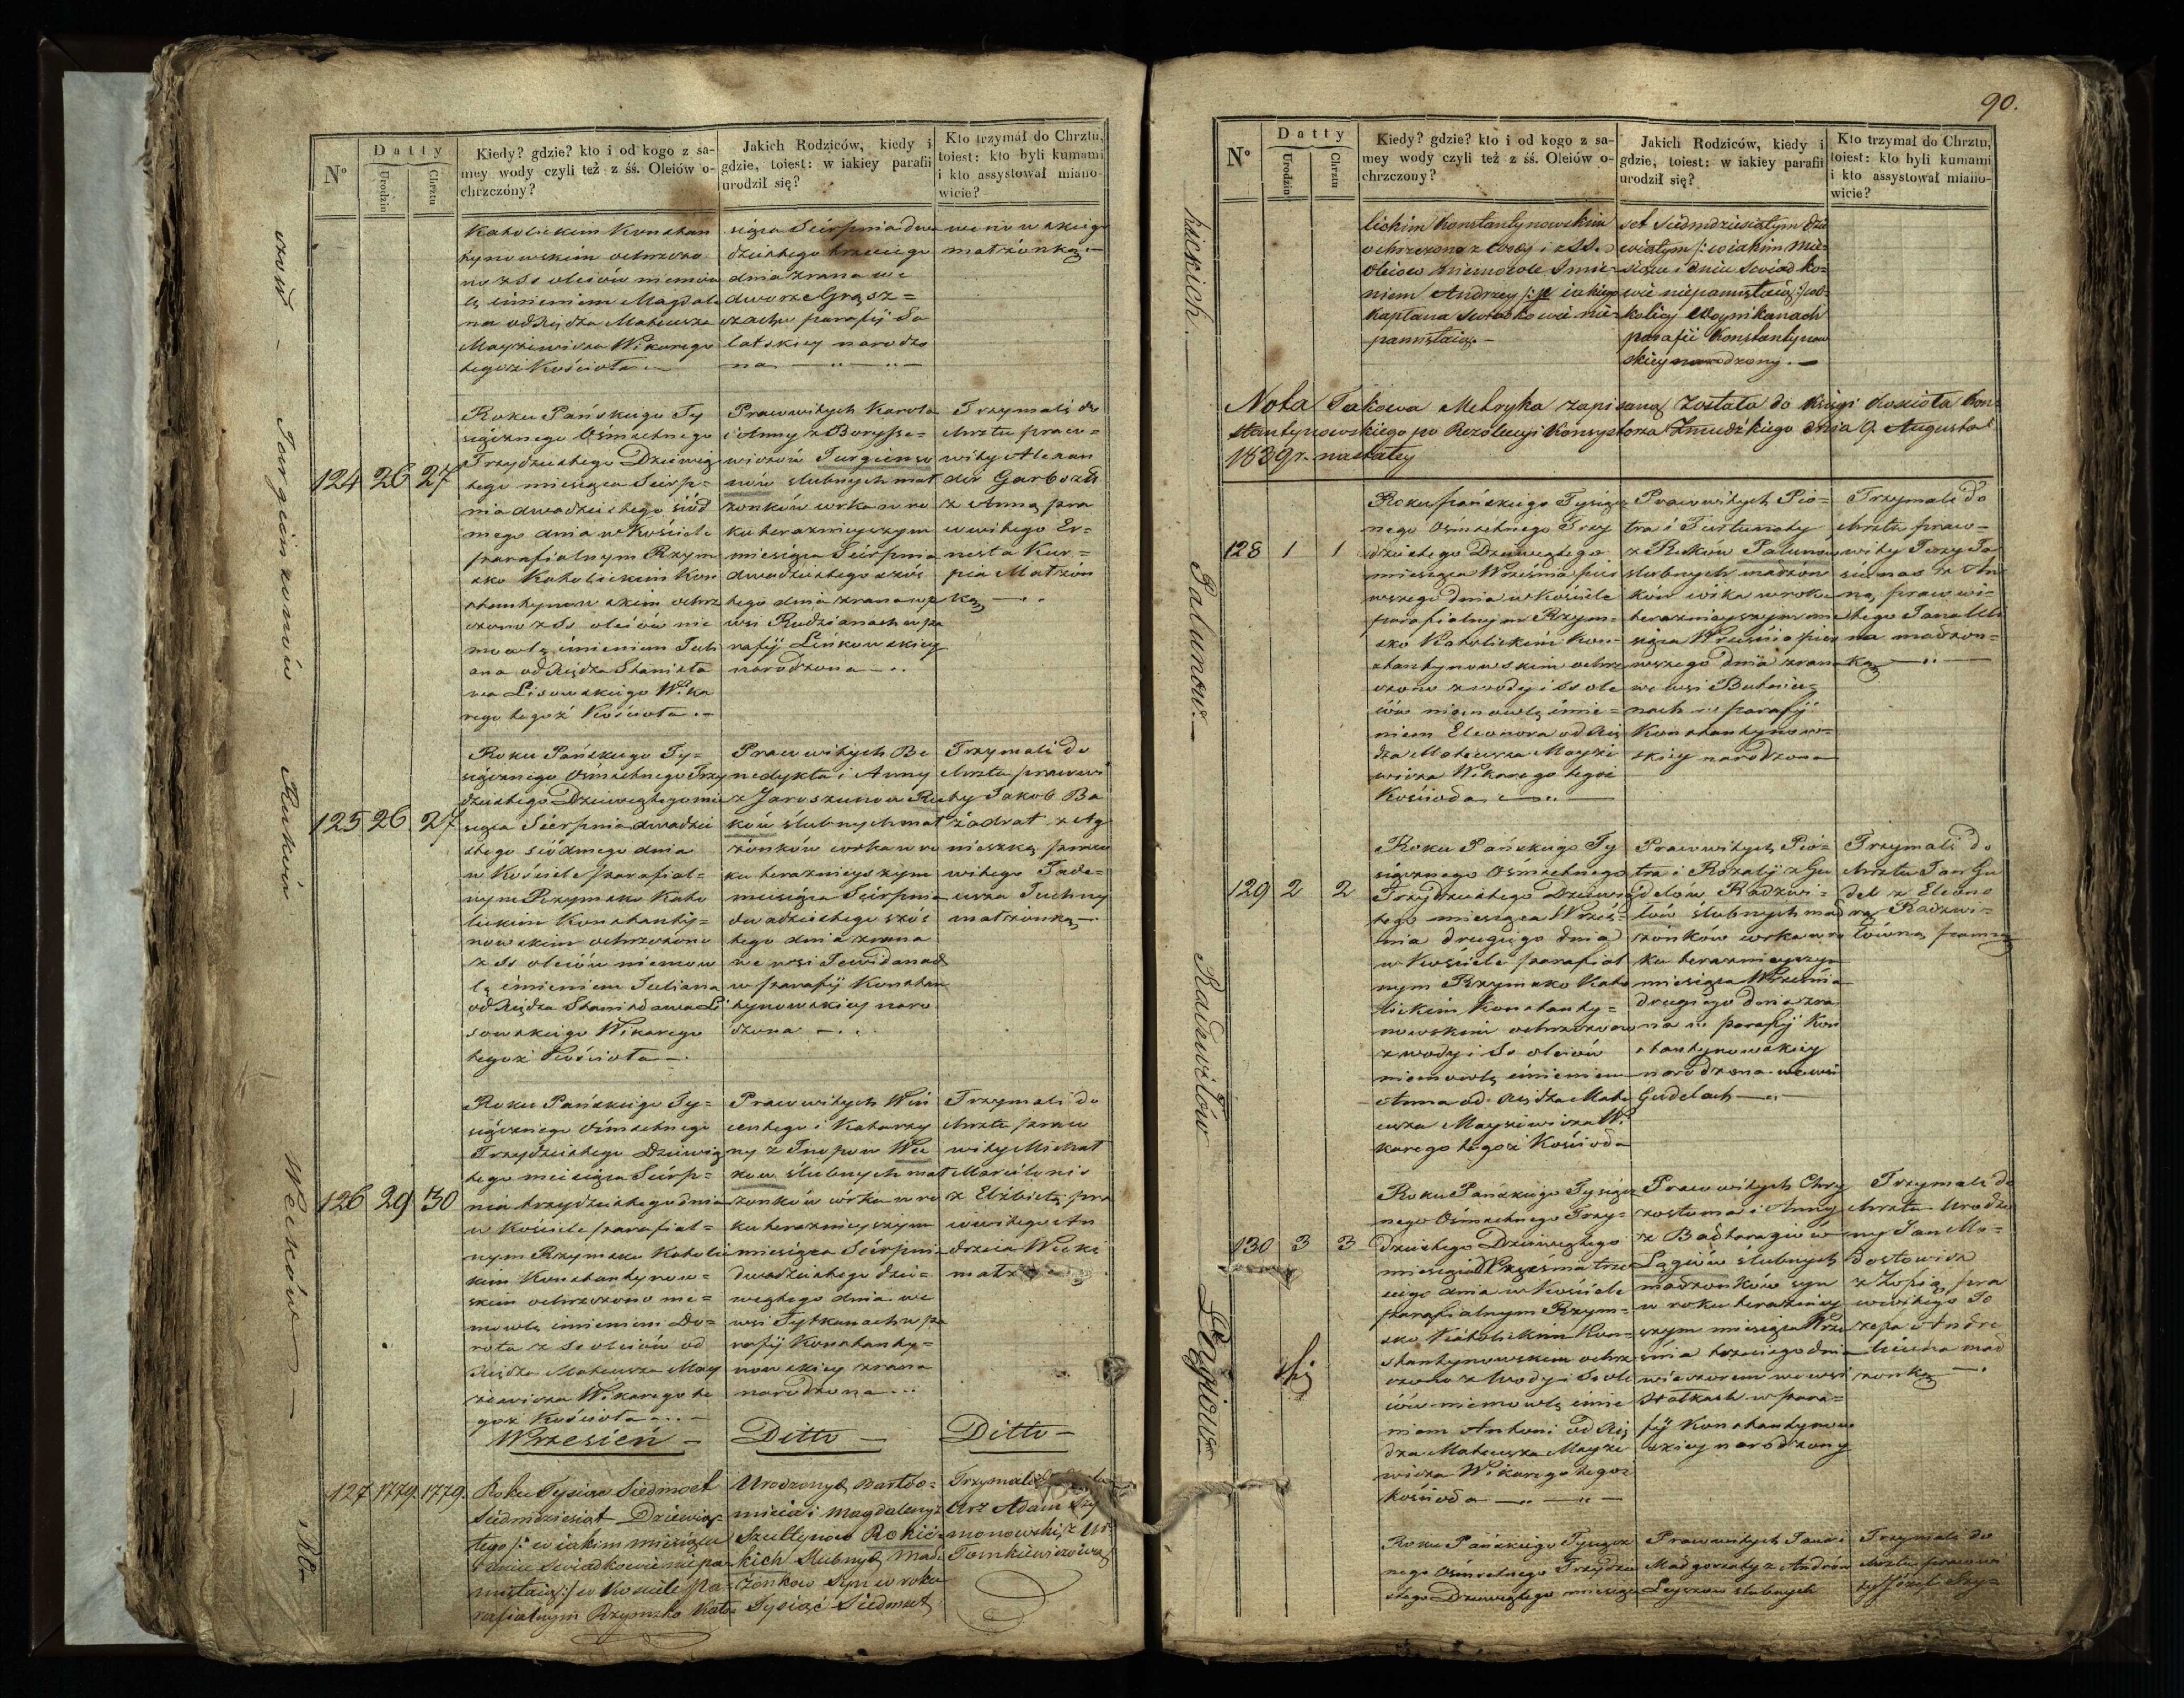 N°
Datty
Urodzin
Chrztu
Kiedy? gdzie? kto i od kogo z sa-
mey wody czyli też z śś. Oleiów o-
chrzczóny?
Jakich Rodziców, kiedy i
gdzie, toiest: w iakiey parafii
urodził się?
Kto trzymał do Chrztu,
toiest: kto byli kumami
i kto assystował miano-
wicie?
Katolickim Konstan
tynowskim ochrzczo
no z Ss oleiów niemow
lę imieniem Magdale
na od Xiędza Mateusza
Mayziewicza Wikarego
tegoż Kościoła
siąca Sierpnia dwa
dziestego trzeciego
dnia zrana we
dworze
parafij Sa
latskiey narodzo
na
małżonką
124
26
27
Roku Pańskiego Ty
siącznego Ośmsetnego
Trzydziestego Dziewią
tego miesiąca Sierp=
nia dwudziestego siód
mego dnia w Kościele
parafialnym Rzym
sko Katolickim Kon
stantynowskim ochrz
czono z Ss oleiów nie
mowlę imieniem Juli
ana od Xiędza Stanisła
wa Lisowskiego Wika
rego tegoż Kościoła
Prawowitych Karola
i Anny z Borysse=
wiczów Jurgienso
nów ślubnych mał
żonków córka w ro
ku teraznieyszym
miesiąca Sierpnia
dwudziestego szós
tego dnia zrana we
wsi Rudzianach w pa
rafij Linkowskiey
narodzona
Trzymali do
chrztu prawo=
wity Alexan
der Garbozis
z Anną pra
wowitego Er=
nesta Kur=
pia Małżon
ką
125
26
27
Roku Pańskiego Ty=
siącznego Ośmsetnego Trzy
dziestego Dziewiątego mie
siąca Sierpnia dwudzie
stego siódmego dnia
w Kościele parafial=
nym Rzymsko Kato
lickim Konstanty=
nowskim ochrzczono
z Ss oleiów niemow
lę imieniem Juliana
od Xiędza Stanisława Li
sowskiego Wikarego
tegoż Kościoła
Prawowitych Be
nedykta i Anny
z Jaroszunow Ru
ków ślubnych mał
żonków córka w ro
ku teraznieyszym
miesiąca Sierpnia
dwudziestego szós
tego dnia zrana
we wsi
w parafij Konstan
tynowskiey naro
dzona
Trzymali do
chrztu prawowi
ty Jakob Ba
żadrat z Ag
nieszką prawo
witego Tade=
usza Juchny
małżonką
126
29
30
Roku Pańskiego Ty=
siącznego Ośmsetnego
Trzydziestego Dziewią
tego miesiąca Sierp=
nia trzydziestego dnia
w Kościele parafial=
nym Rzymsko Katolic
kim Konstantynow=
skim ochrzczono nie=
mowlę imieniem Do=
rota z Ss oleiów od
Xiędza Mateusza May
ziewicza Wikarego te
goż Kościoła
Prawowitych Win
centego i Katarzy
ny z Wec
kow ślubnych mał
żonków córka w ro
ku teraznieyszym
miesiąca Sierpnia
dwudziestego dzie=
wiątego dnia we
wsi Tytkunach w pa
rafij Konstanty=
nowskiey zrana
narodzona
Trzymali do
chrztu prawo
wity Michał
Marcilonis
z Elżbietą pra
wowitego An
drzeia Wecki
małż
Wrzesień
Ditto
Ditto
127
1779
1779
Roku Tysiąc Siedmset
Siedmdziesiąt Dziewią=
tego /: w iakim miesiącu
i dniu świadkowie niepa=
miętaią :/ w Kościele Pa=
rafialnym Rzymsko Kato=
Urodzonych Bartło=
mieia i Magdaleny z
Szultynow Rokic=
kich Slubnych Mał=
żonkow Syn w roku
Tysiąc Siedmset
Trzymali
Urz Adam Szy=
monowski z Ur=
Tomkiewiczową
Jurgiensonów
Ruków
Weckow
Ro
90.
N°
Datty
Urodzin
Chrztu
Kiedy? gdzie? kto i od kogo z sa-
mey wody czyli też z śś. Oleiów o-
chrzczony?
Jakich Rodziców, kiedy i
gdzie, toiest: w iakiey parafii
urodził się?
Kto trzymał do Chrztu,
toiest: kto byli kumami
i kto assystował miano-
wicie?
kickich
lickim Konstantynowskim
ochrzczono z wody i z SS.
Oleiow niemowle Imie=
niem Andrzey /: iakiego
kapłana swiadkowie nie=
pamiętaią.
set Siedmdziesiątym Dzie
wiątym /: w iakim Mie=
siącu i dniu świadko=
wie niepamiętaią :/ w
parafii Konstantynow
skiey narodzony.
Nota Takowa Metryka zapisaną została do Księgi Kościoła Kon=
stantynowskiego po Rezolucyi Konsystorza Żmudzkiego Dnia 9. Augusta
1839 r. nastałey
Palunow
128
1
1
Roku Pańskiego Tysiącz
nego Ośmsetnego Trzy
dziestego Dziewiątego
miesiąca Września pier
wszego dnia w Kościele
parafialnym Rzym=
sko Katolickim Kon=
stantynowskim ochrz
czono z wody i Ss ole
iów niemowlę imie=
niem Eleonora od Xię
dza Mateusza Mayzie
wicza Wikarego tegoż
Kościoła
Prawowitych Pio=
tra i Fortunaty
z Ruków Palunow
ślubnych małżon
ków córka w roku
teraznieyszym mie
siąca Września pier
wszego dnia zrana
we wsi
nach w parafij
Konstantynow=
skiey narodzona
Trzymali do
chrztu prawo=
wity Jerzy Ja
sunas z An
ną prawowi=
tego Jana
małżon=
ką
Radzwiłów
129
2
2
Roku Pańskiego Ty
siącznego Ośmsetnego
Trzydziestego Dziewią
tego miesiąca Wrześ=
nia drugiego dnia
w Kościele parafial
nym Rzymsko Kato
lickim Konstanty=
nowskim ochrzczono
z wody i Ss oleiów
niemowlę imieniem
Anna od Xiędza Mate
usza Mayziewicza Wi
karego tegoż Kościoła
Prawowitych Pio=
tra i Rozalij z Gu
delów Radzwi=
łów ślubnych mał
żonków córka w ro
ku teraznieyszym
miesiąca Września
drugiego dnia zra
na w parafij Kon
stantynowskiey
narodzona we wsi
Gudelach
Trzymali do
chrztu Jan Gu
del z Eleono
rą Radzwi=
łówną panną
Łęgiow
130
3
3
Roku Pańskiego Tysiącz
nego Ośmsetnego Trzy=
dziestego Dziewiątego
miesiąca Września trze
ciego dnia w Kościele
parafialnym Rzym=
sko Katolickim Kon=
stantynowskim ochrz
czono z wody i Ss ole
iów niemowlę imie
niem Antoni od Xię
dza Mateusza Mayzie
wicza Wikarego tegoż
Kościoła
Prawowitych Chry
zostoma i Anny
Łęgiów ślubnych
małżonków syn
w roku terazniey
szym miesiąca Wrze
śnia trzeciego dnia
wieczorem we wsi
w para=
fij Konstantynow
skiey narodzony
Trzymali do
chrztu Urodzo
ny Jan Mo=
dostowicz
z Zofią pra
wowitego Jo
zefa
mał
żonką
Roku Pańskiego Tysiącz
nego Ośmsetnego Trzydzie
stego Dziewiątego miesiąca
Prawowitych Jana i
Małgorzaty z Andrów
ślubnych
Trzymali do
chrztu prawowi
ty Józef Szy=